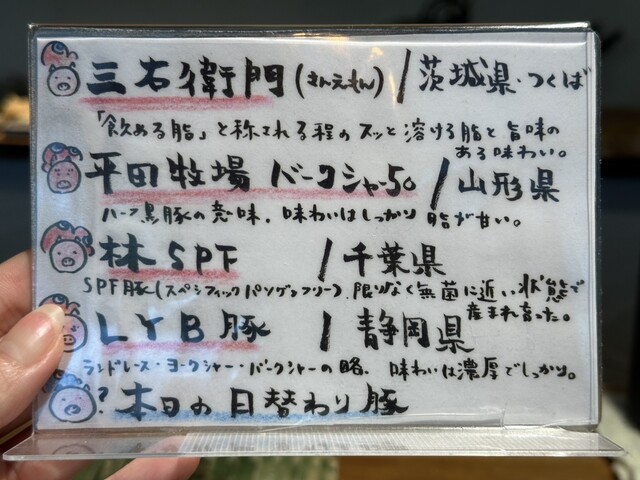 三右衛門(さんえもん)/茨城県・つくば
「飲める脂」と称される程のスッと溶ける脂と旨味の
ある味わい。
平田牧場 バークシャー50/山形県
ハーフ黒豚の意味。味わいはしっかり 脂が甘い。
林SPF/千葉県
SPF豚(スペシフィックパソゲンフリー)限りなく無菌に近い状態で
産まれ育った。
LYB豚/静岡県
ランドレース・ヨークシャー・バークシャーの略。味わいは濃厚でしっかり。
?本日の日替わり豚